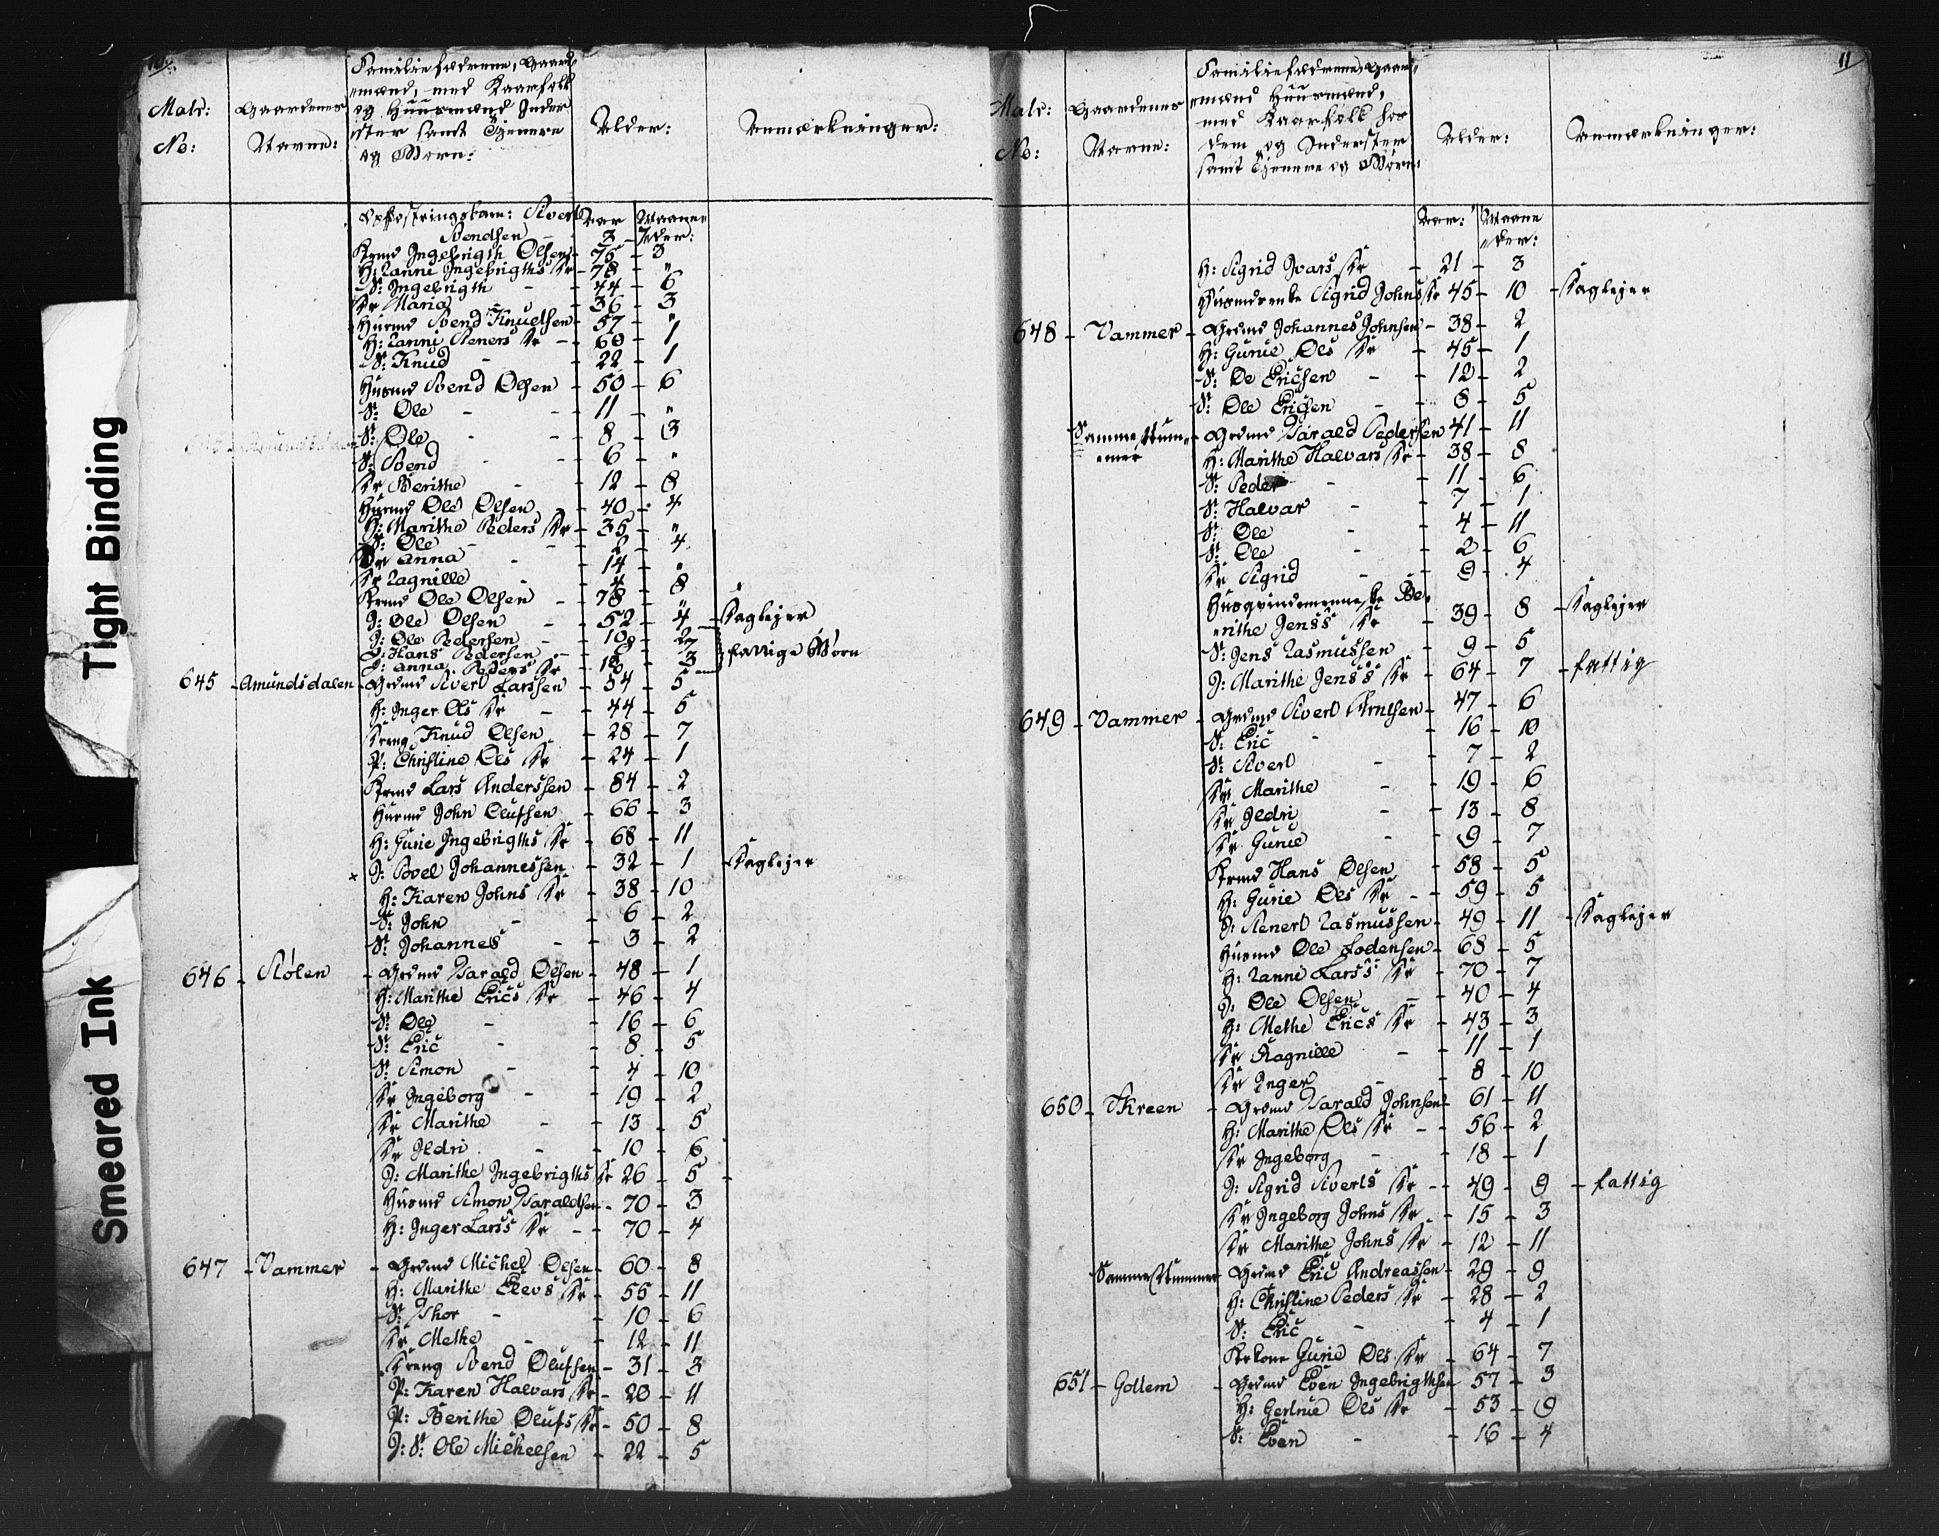 Tight Binding
Smeared Ink
10
Matr: No: Gaardenes Navne: Familiefædrene, Gaard-
mænd, med Kaarfolk
og Huusmænd Inder
ster samt Tjenere
og Børn: Alder: Anmærkninger:
Opfostringsbarn: Sivert Aar Maane-
Bendsen - 3 - der:
Krmd Ingebrigth Olsen - 76 - 3
H: Ranni Ingebrigths Dr - 78 - "
S: Ingebrigth - 44 - 6
Dr Maria - 36 - 3
Huusmd Bend Knudsen - 57 - "
H: Ranni Reners Dr - 60 - 1
S: Knud - 22 - 1
Huusmd Bend Olsen - 50 - 6
S: Ole - 11 - "
S: Ole - 8 - 3
S: Bend - 6 - "
Dr Berithe - 12 - 8
Huusmd Ole Olsen - 40 - 4
H: Marithe Peders Dr - 35 - "
S: Ole - 2 - 4
Dr Anna - 14 - "
Dr Ragnille - 4 - 8
Krmd Ole Olsen - 78 - "
J: Ole Olsen - 52 - 4 - Daglejer
J: Ole Pedersen - 10 - 2
J: Hans Pedersen - 8 - 7 fattige Børn
J: Anna Peders Dr - 12 - 3
645 - Amundsdalen - Grdmd Sivert Larssen - 54 - 5
H: Inger Ols Dr - 44 - 5
Dreng Knud Olsen - 28 - 7
P: Christine Ols Dr - 24 - 1
Krmd Lars Anderssen - 84 - 2
Huusmd John Olufsen - 66 - 3
H: Gurie Ingebrigths Dr - 68 - 11
J: Povel Johannessen - 32 - 1 - Daglejer
H: Karen Johns Dr - 38 - 10
S: John - 6 - 2
S: Johannes - 3 - 2
646 - Rølen - Grdmd Harald Olsen - 48 - 1
H: Marithe Erics Dr - 46 - 4
S: Ole - 16 - 6
S: Eric - 8 - 5
S: Simon - 4 - 10
Dr Ingeborg - 19 - 2
Dr Marithe - 13 - 5
Dr Ildri - 10 - 6
J: Marithe Ingebrigths Dr 26 - 5 -
Huusmd Simon Haraldsen - 70 - 3
H: Inger Lars's Dr - 70 - 4
647 - Vammer - Grdmd Michel Olsen - 60 - 8
H: Marithe Elevs Dr - 55 - 11
S: Thor - 10 - 6
Dr Methe - 12 - 11
Dreng Bend Olufsen - 31 - 3
P: Karen Halvars Dr - 20 - 11
P: Berithe Olufs Dr - 50 - 8
J: S: Ole Michelsen - 22 - 5
11
Matr: No: Gaardenes Navne: Familiefædrene, Gaard-
mænd Huusmænd,
med Kaarfolk hos
dem og Inderster
samt Tjenere og Børn: Alder: Anmærkninger:
Aar: Maane
der:
H: Sigrid Ivars Dr - 21 - 3
Huusmdenke Sigrid Johns Dr 45 - 10 - Daglejer
648 - Vammer - Grdmd Johannes Johnsen - 38 - 2
H: Gurie Ols Dr - 45 - 1
S: Ole Ericsen - 12 - 2
S: Ole Ericsen - 8 - 5
Samme Num-
mer - Grdmd Harald Pedersen 41 - 11
H: Marithe Halvars Dr - 38 - 8
S: Peder - 11 - 6
S: Halvar - 7 - 1
S: Ole - 4 - 11
S: Ole - 2 - 6
Dr Sigrid - 9 - 4
Huusqvindemenneske Be-
rithe Jens's Dr - 39 - 8 - Daglejer
S: Jens Rasmussen - 9 - 5
J: Marithe Jens's Dr - 64 - 7 - fattig
649 - Vammer - Grdmd Sivert Arntsen - 47 - 6
S: Eric - 16 - 10
S: Sivert - 7 - 2
Dr Marithe - 19 - 6
Dr Ildri - 13 - 8
Dr Gurie - 9 - 7
Krmd Hans Olsen - 58 - 5
H: Gurie Ols Dr - 59 - 5
J: Renert Rasmussen - 49 - 11 - Daglejer
Huusmd Ole Lodensen - 68 - 5
H: Ranni Lars's Dr - 70 - 7
J: Ole Olsen - 40 - 4
H: Methe Erics Dr - 43 - 3
Dr Ragnille - 11 - 1
Dr Inger - 8 - 10
650 - Kreen - Grdmd Harald Johnsen 61 - 11
H: Marithe Ols Dr - 56 - 2
Dr Ingeborg - 18 - 1
J: Sigrid Siverts Dr - 49 - 9 - fattig
Dr Ingeborg Johns Dr - 15 - 3
Dr Marithe Johns Dr - 12 - 11
Samme Nummer - Grdmd Eric Andreassen - 29 - 9
H: Christine Peders Dr - 28 - 2
S: Eric - 4 - 1
Krkone Gurie Ols Dr - 64 - 7
651 - Gollem - Grdmd Even Ingebrigthsen 57 - 3
H: Gertrue Ols Dr - 53 - 9
S: Even - 16 - 4